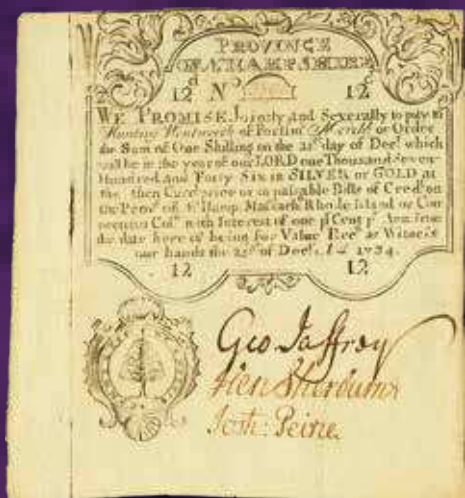 PROVINCE
OF N. HAMPSHIRE
12ᵈ Nº 12ᵈ
WE PROMISE Joyntly and Severally to pay to
Hunting Wentworth of Portsmº Merchᵗ or Order
the Sum of One Shilling on the 25ᵗʰ day of Decʳ which
will be in the year of our LORD one Thousand Seven
Hundred and Forty Six in SILVER or GOLD at
the then Curᵗ price or in passable Bills of Credᵗ on
the Provᶜ of N Hamp Massachˢ Rhode Island or Con
necticut Colˢ with Interest of one pʳ Cent pʳ Ann from
the date hereof being for Value Recᵈ as Witness
our hands the 25ᵗʰ of Decʳ 1734.
12 12
Geo Jaffrey
Hen Sherburne
Josh: Peirce